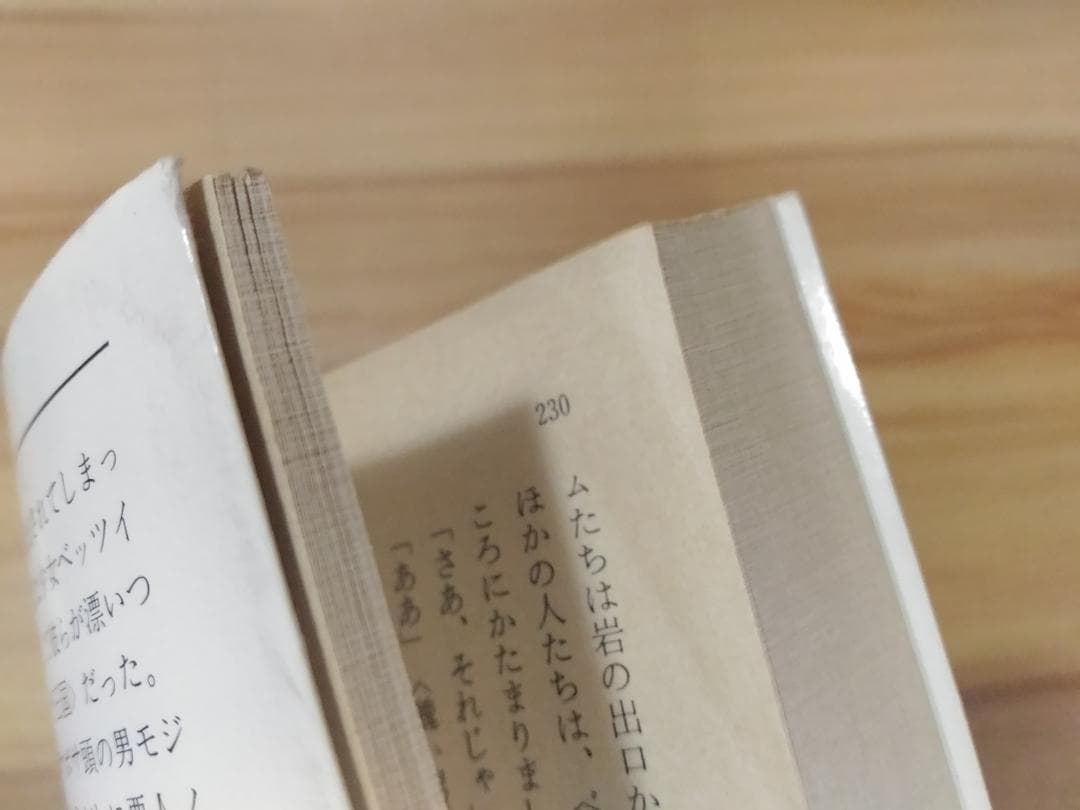 れてしまっ
ベッツイ
らが漂いつ
だった。
頭の男モジ
230
ムたちは岩の出口か
ほかの人たちは、
ころにかたまりまし
「さあ、それじゃ
「ああ」